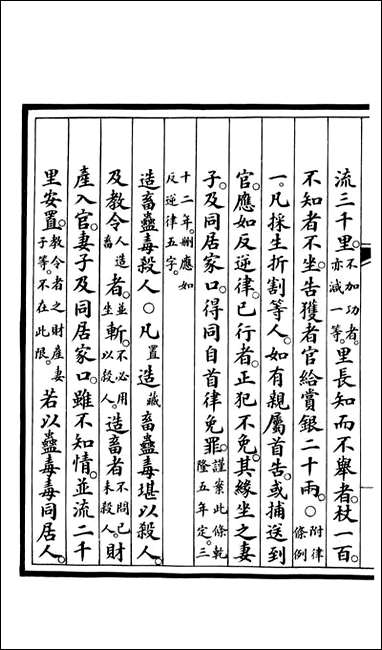 流三千里。不加功者。亦減一等。里長知而不舉者。杖一百。
不知者不坐。告獲者。官給賞銀二十兩。○附律條例
一。凡採生折割等人。如有親屬首告。或捕送到
官。應如反逆律。已行者。正犯不免。其緣坐之妻
子及同居家口。得同自首律免罪。謹案此條乾隆五年定。三
十二年。刪應如反逆律五字。
造畜蠱毒殺人○凡置造藏畜蠱毒。堪以殺人。
及教令人造畜者。並坐斬。不必用以殺人。造畜者不問已未殺人。財
產入官。妻子及同居家口。雖不知情。並流二千
里安置。教令者之財產妻子等。不在此限。若以蠱毒毒同居人。